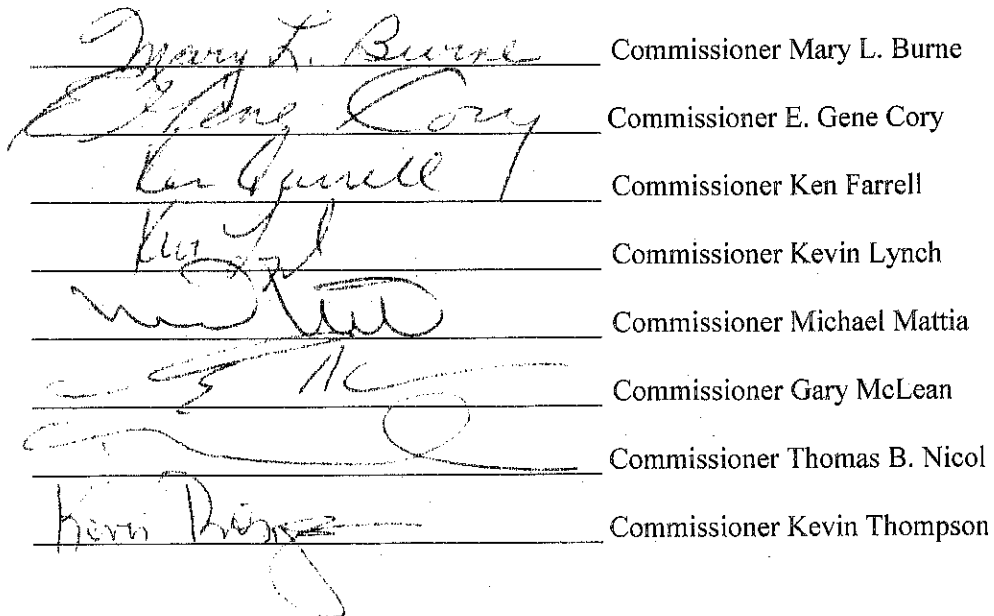 Mary L. Burne Commissioner Mary L. Burne
E. Gene Cory Commissioner E. Gene Cory
Ken Farrell Commissioner Ken Farrell
Commissioner Kevin Lynch
Commissioner Michael Mattia
Commissioner Gary McLean
Commissioner Thomas B. Nicol
Kevin Commissioner Kevin Thompson